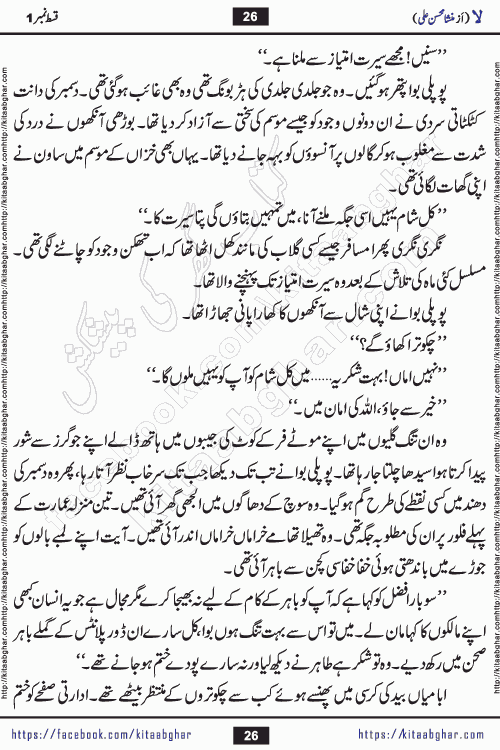 لا (از منشا محسن علی)
26
قسط نمبر 1
’’سنیں! مجھے سیرت امتیاز سے ملنا ہے۔‘‘
پوپلی بوا پتھر ہو گئیں۔ وہ جو جلدی جلدی کی ہڑبونگ تھی وہ بھی غائب ہو گئی تھی۔ دسمبر کی دانت
کٹکٹاتی سردی نے ان دونوں وجود کو جیسے موسم کی سختی سے آزاد کر دیا تھا۔ بوڑھی آنکھوں نے درد کی
شدت سے مغلوب ہو کر گالوں پر آنسوؤں کو بہہ جانے دیا تھا۔ یہاں بھی خزاں کے موسم میں ساون نے
اپنی گھات لگائی تھی۔
’’کل شام یہیں اسی جگہ ملنے آنا، میں تمہیں بتاؤں گی پتا سیرت کا۔‘‘
نگری نگری پھرا مسافر جیسے کسی گلاب کی مانند کھل اٹھا تھا کہ اب تھکن وجود کو چاٹنے لگی تھی۔
مسلسل کئی ماہ کی تلاش کے بعد وہ سیرت امتیاز تک پہنچنے والا تھا۔
پوپلی بوا نے اپنی شال سے آنکھوں کا کھارا پانی جھاڑا تھا۔
’’چکوترا کھاؤ گے؟‘‘
’’نہیں اماں! بہت شکریہ...... میں کل شام کو آپ کو یہیں ملوں گا۔‘‘
’’خیر سے جاؤ، اللہ کی امان میں۔‘‘
وہ ان تنگ گلیوں میں اپنے موٹے فر کے کوٹ کی جیبوں میں ہاتھ ڈالے اپنے جوگرز سے شور
پیدا کرتا ہوا سیدھا چلتا جا رہا تھا۔ پوپلی بوا نے تب تک دیکھا جب تک سرخاب نظر آتا رہا، پھر وہ دسمبر کی
دھند میں کسی نقطے کی طرح گم ہو گیا۔ وہ سوچ کے دھاگوں میں الجھی گھر آئی تھیں۔ تین منزلہ عمارت کے
پہلے فلور پر ان کی مطلوبہ جگہ تھی۔ وہ تھیلا تھامے خراماں خراماں اندر آئی تھیں۔ آیت اپنے لمبے بالوں کو
جوڑے میں باندھتی ہوئی خفا خفا سی کچن سے باہر آئی تھی۔
’’سو بار افضل کو کہا ہے کہ آپ کو باہر کے کام کے لیے نہ بھیجا کرے مگر مجال ہے جو یہ انسان کبھی
اپنے مالکوں کا کہا مان لے۔ میں تو اس سے بہت تنگ ہوں بوا، کل سارے ان ڈور پلانٹس کے گملے باہر
صحن میں رکھ دیے۔ وہ تو شکر ہے طاہر نے دیکھ لیا ورنہ سارے پودے ختم ہو جانے تھے۔‘‘
ابا میاں بید کی کرسی میں پھنسے ہوئے کب سے چکوتروں کے منتظر بیٹھے تھے۔ ادارتی صفحے کو ختم
https://facebook.com/kitaabghar
26
https://kitaabghar.com